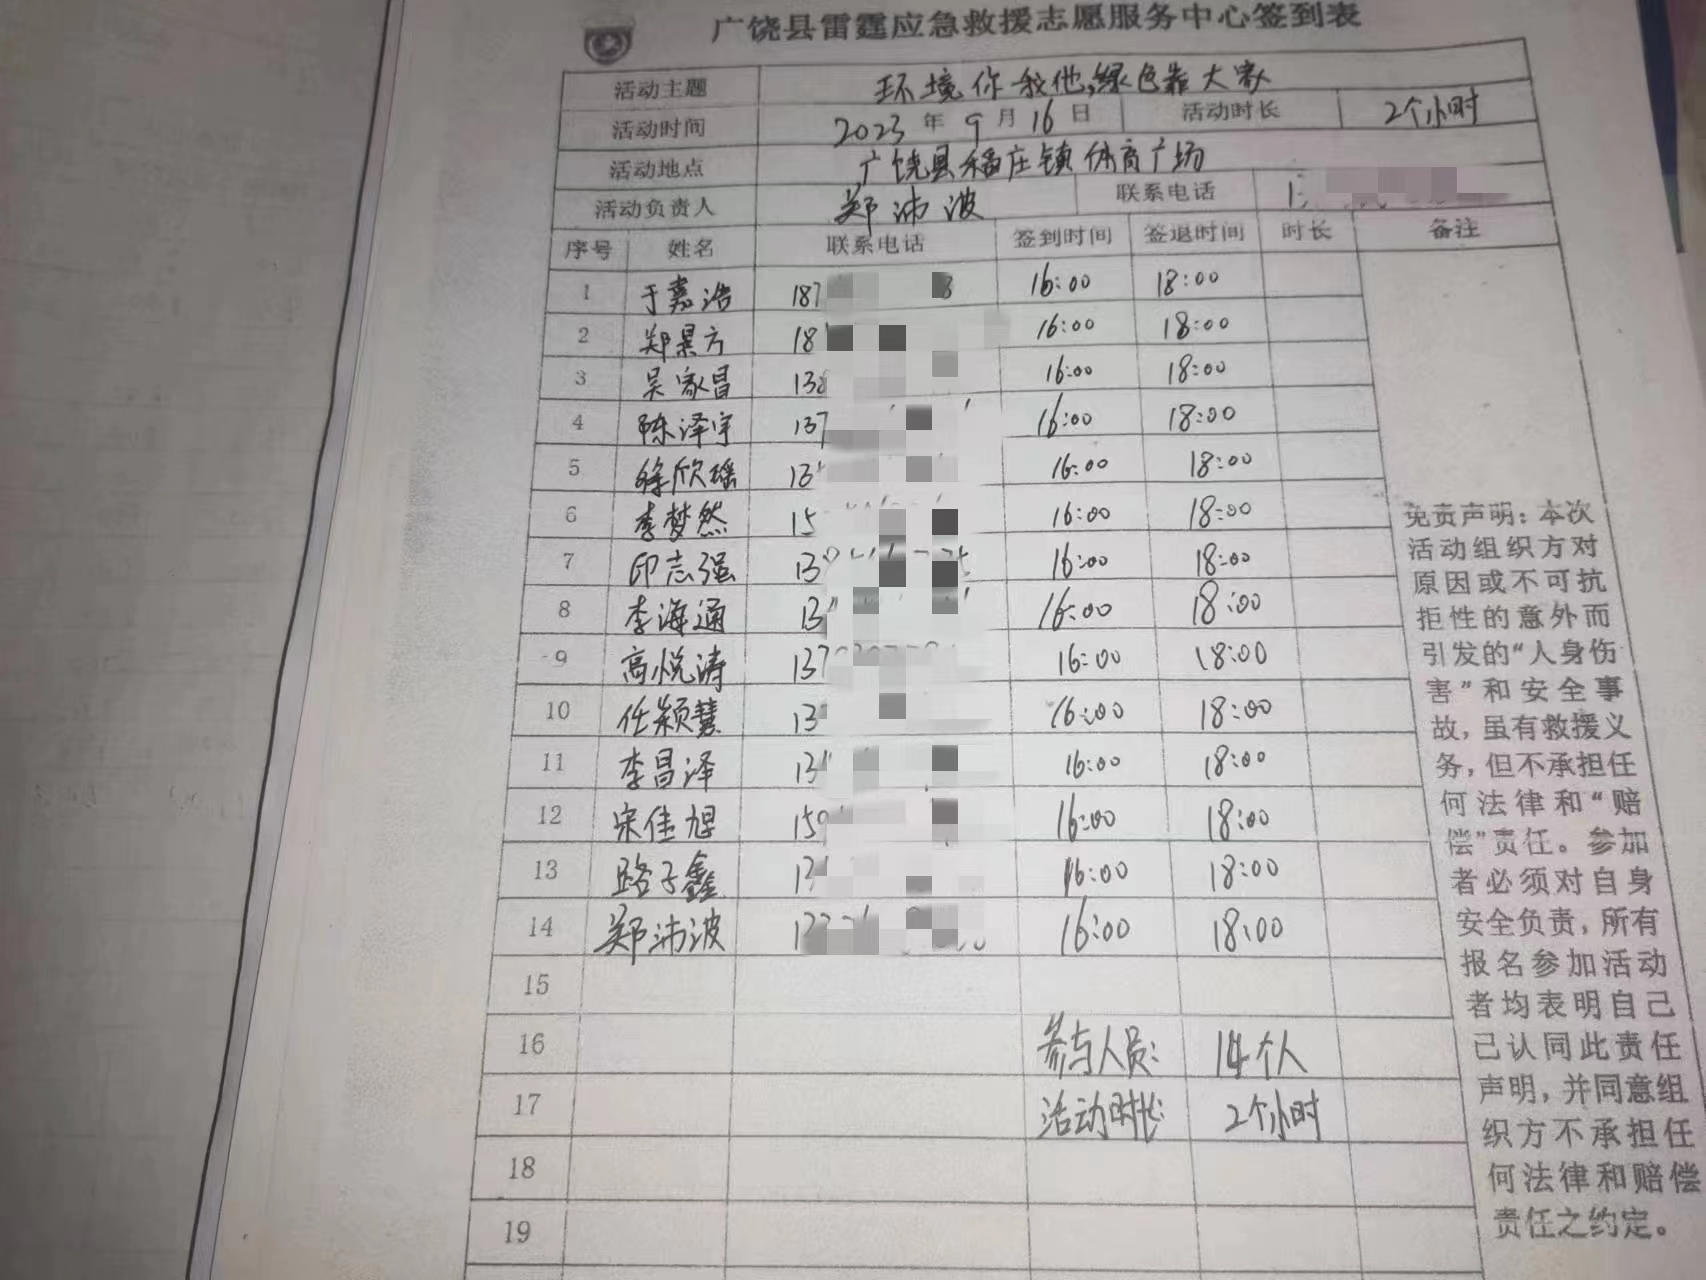 广饶县雷霆应急救援志愿服务中心签到表
活动主题 环境你我他,绿色靠大家
活动时间 2023年9月16日 活动时长 2个小时
活动地点 广饶县稻庄镇体育广场
活动负责人 郑沛波 联系电话
序号 姓名 联系电话 签到时间 签退时间 时长 备注
1 于嘉浩 187 16:00 18:00
2 郑景方 18 16:00 18:00
3 吴家昌 138 16:00 18:00
4 陈泽宇 137 16:00 18:00
5 徐欣瑶 13 16:00 18:00
6 李梦然 15 16:00 18:00
7 邱志强 13 16:00 18:00
8 李海通 13 16:00 18:00
9 高悦涛 137 16:00 18:00
10 任颖慧 13 16:00 18:00
11 李昌泽 13 16:00 18:00
12 宋佳旭 159 16:00 18:00
13 路子鑫 13 16:00 18:00
14 郑沛波 16:00 18:00
15
16 参与人员: 14个人
17 活动时长: 2个小时
18
19
免责声明:本次
活动组织方对
原因或不可抗
拒性的意外而
引发的“人身伤
害”和安全事
故,虽有救援义
务,但不承担任
何法律和“赔
偿”责任。参加
者必须对自身
安全负责,所有
报名参加活动
者均表明自己
已认同此责任
声明,并同意组
织方不承担任
何法律和赔偿
责任之约定。